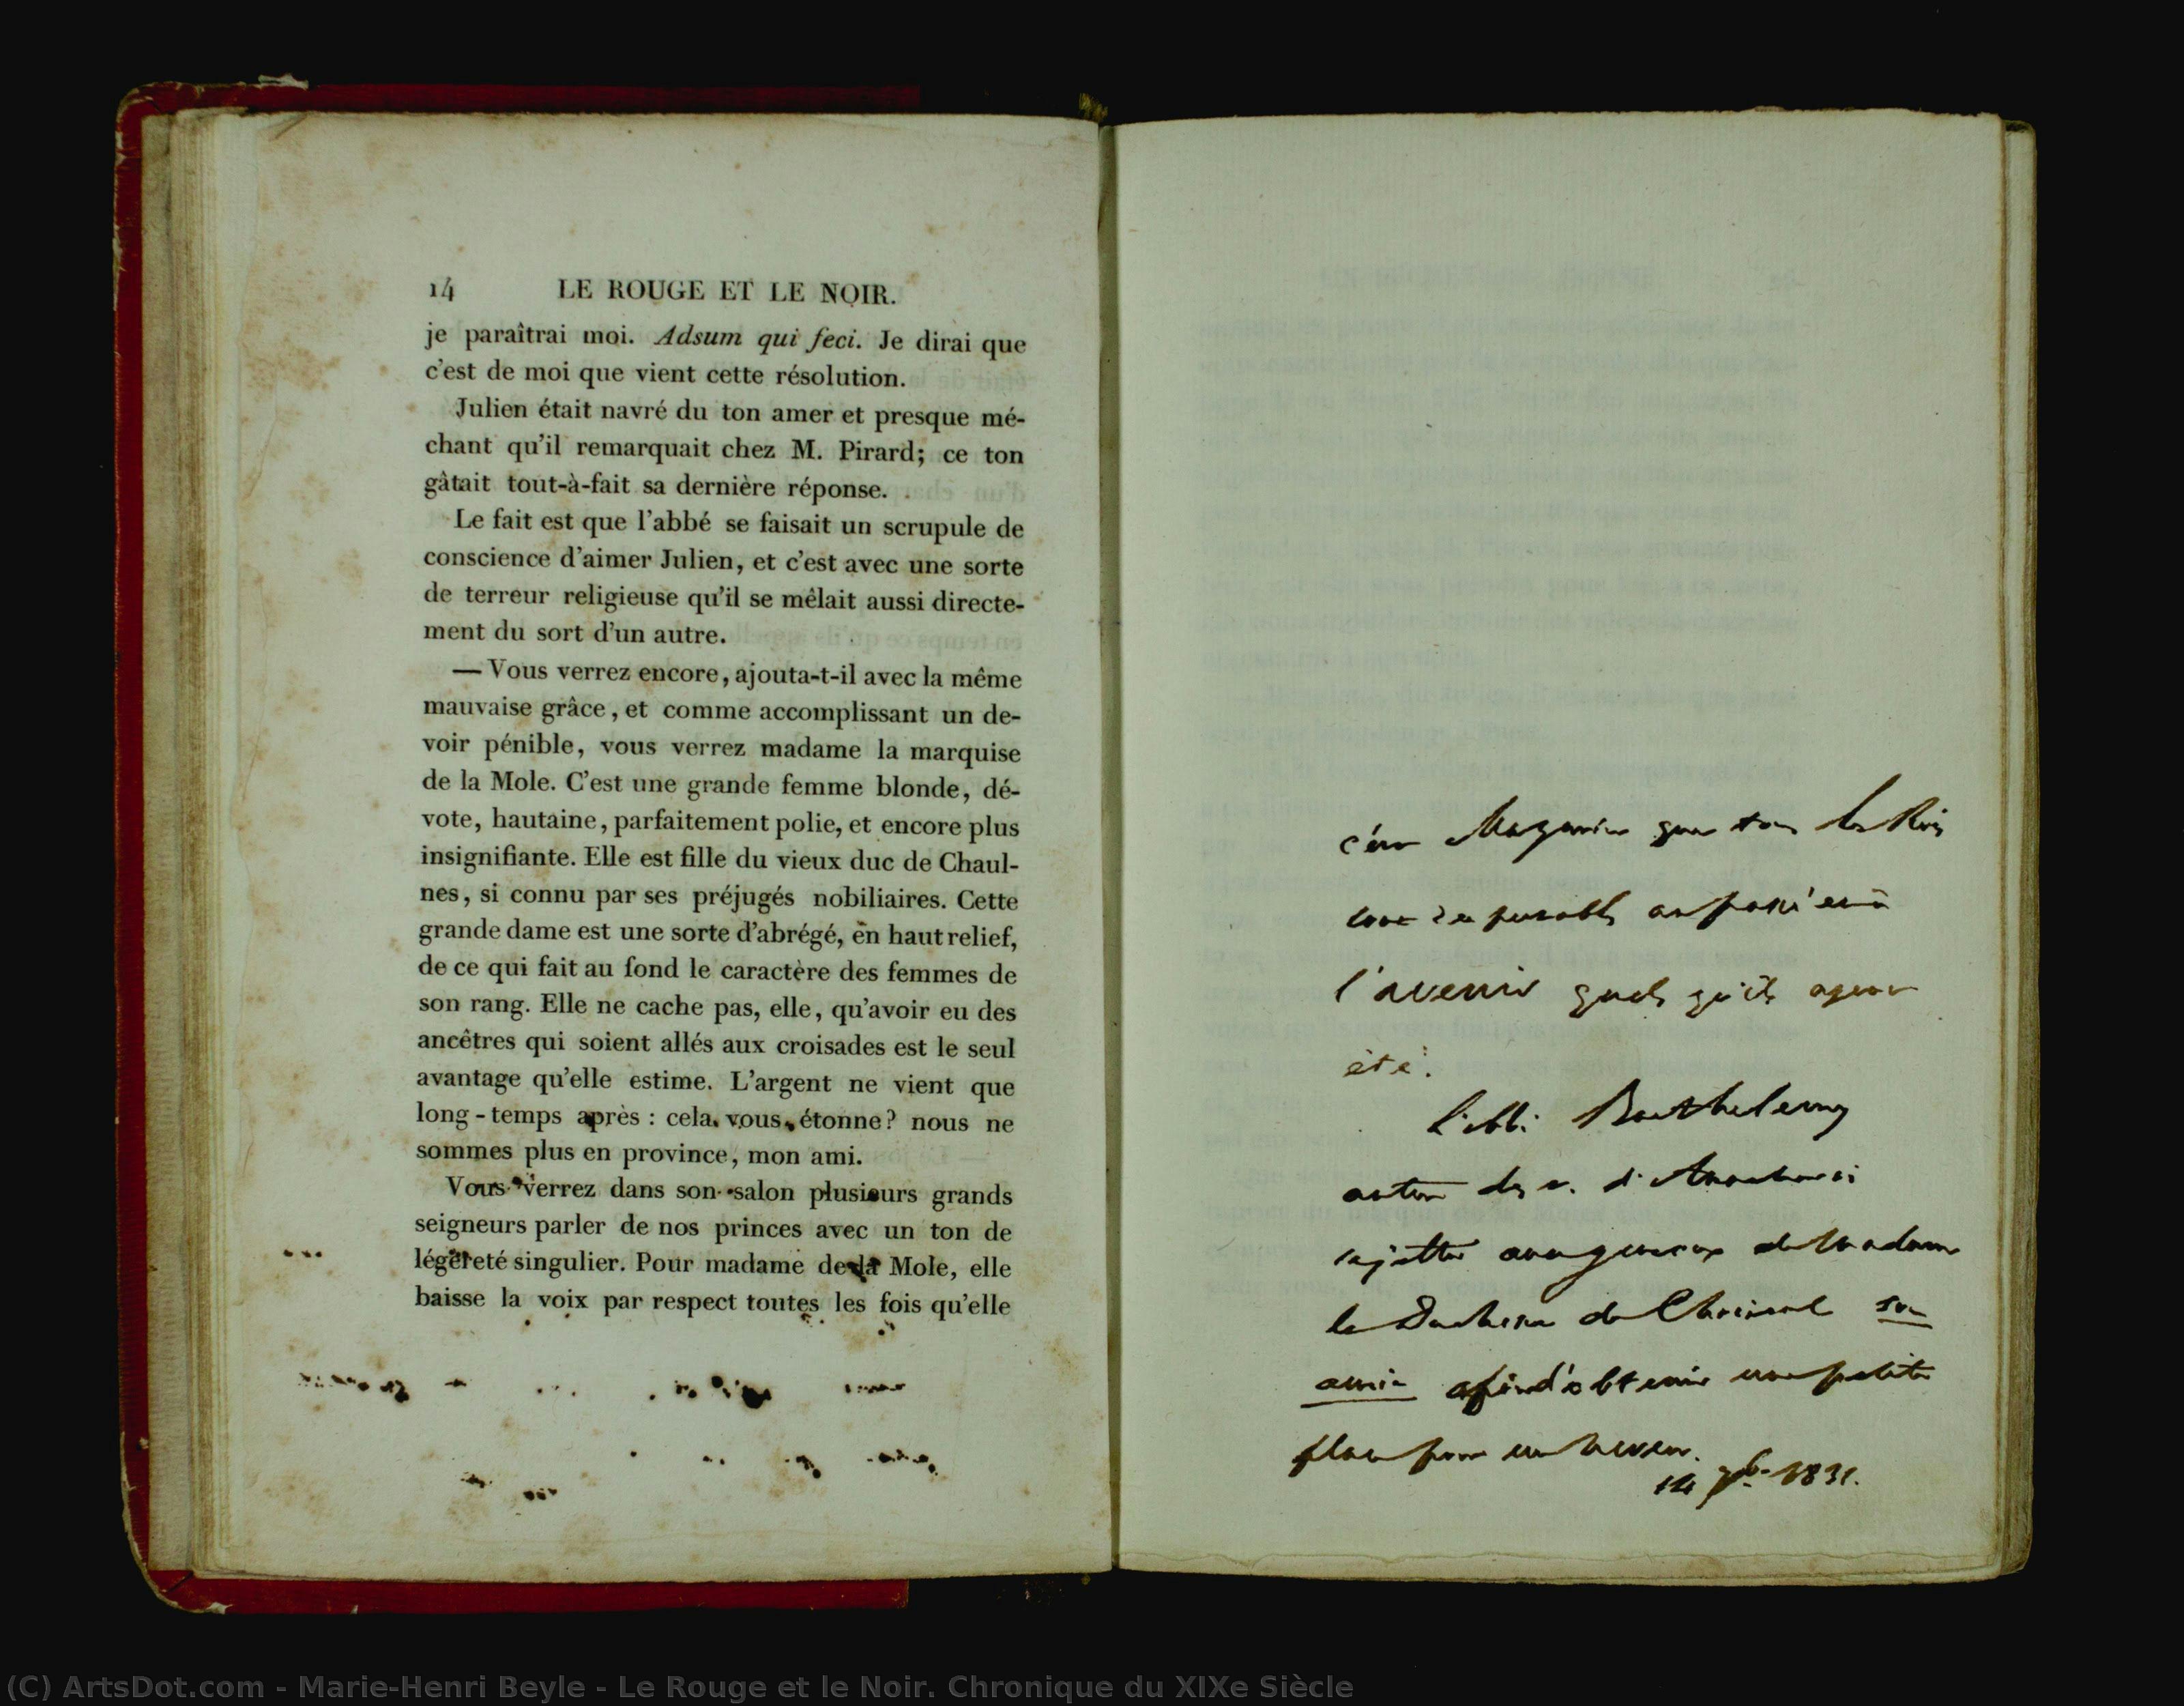 14 LE ROUGE ET LE NOIR.
je paraîtrai moi. Adsum qui feci. Je dirai que
c'est de moi que vient cette résolution.
Julien était navré du ton amer et presque mé-
chant qu'il remarquait chez M. Pirard; ce ton
gâtait tout-à-fait sa dernière réponse.
Le fait est que l'abbé se faisait un scrupule de
conscience d'aimer Julien, et c'est avec une sorte
de terreur religieuse qu'il se mêlait aussi directe-
ment du sort d'un autre.
— Vous verrez encore, ajouta-t-il avec la même
mauvaise grâce, et comme accomplissant un de-
voir pénible, vous verrez madame la marquise
de la Mole. C'est une grande femme blonde, dé-
vote, hautaine, parfaitement polie, et encore plus
insignifiante. Elle est fille du vieux duc de Chaul-
nes, si connu par ses préjugés nobiliaires. Cette
grande dame est une sorte d'abrégé, en haut relief,
de ce qui fait au fond le caractère des femmes de
son rang. Elle ne cache pas, elle, qu'avoir eu des
ancêtres qui soient allés aux croisades est le seul
avantage qu'elle estime. L'argent ne vient que
long-temps après : cela vous étonne? nous ne
sommes plus en province, mon ami.
Vous verrez dans son salon plusieurs grands
seigneurs parler de nos princes avec un ton de
légèreté singulier. Pour madame de la Mole, elle
baisse la voix par respect toutes les fois qu'elle
que tous les Rois
l'avenir quels qu'ils ayent
été.
l'abbé Barthelemy
auteur du v. d'Anacharsis
se jette aux genoux de Madame
la Duchesse de Choiseul son
amie afin d'obtenir une petite
place pour un neveu.
14 1831.
(C) ArtsDot.com - Marie-Henri Beyle - Le Rouge et le Noir. Chronique du XIXe Siècle